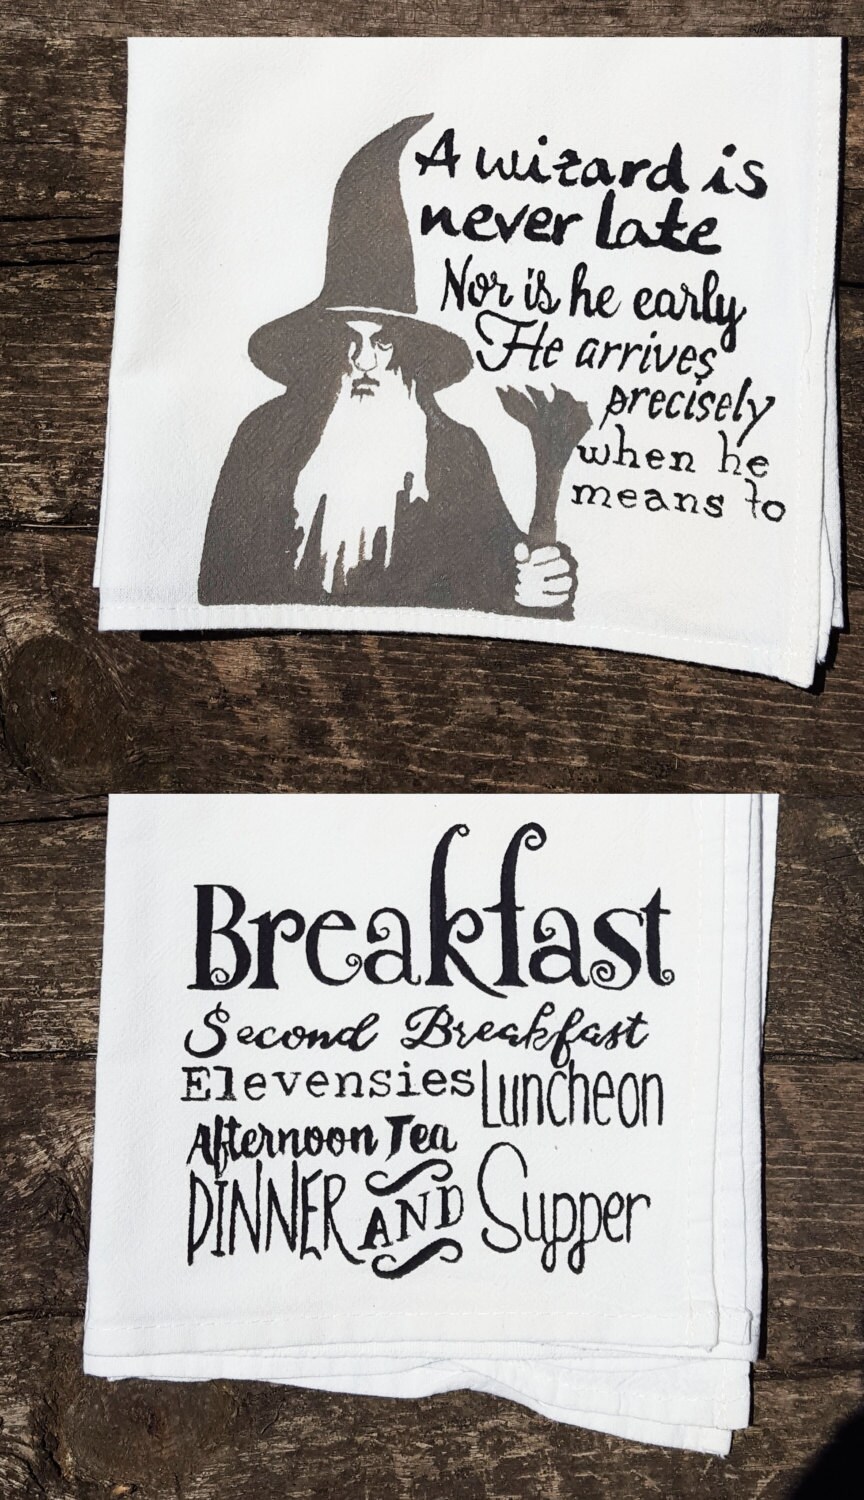 A wizard is
never late
Nor is he early
He arrives
precisely
when he
means to
Breakfast
Second Breakfast
Elevensies Luncheon
Afternoon Tea
DINNER AND Supper